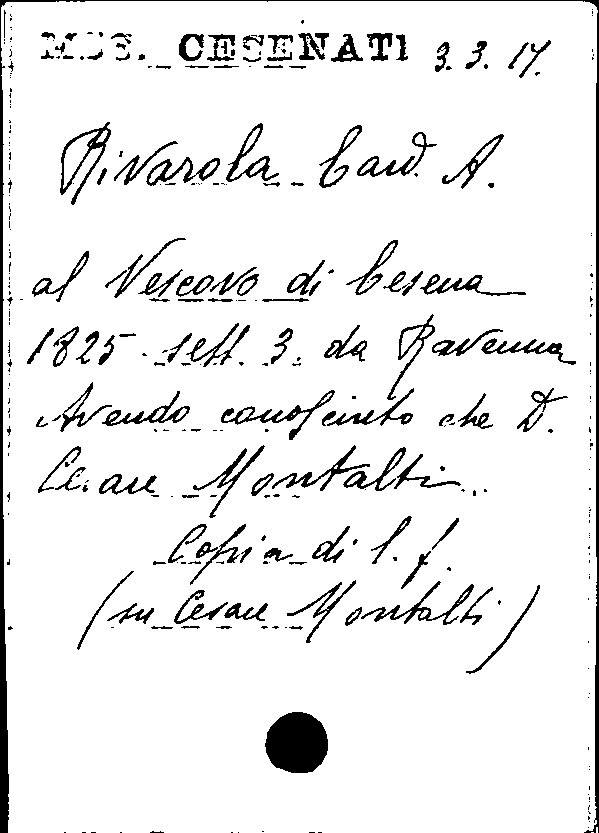 MSS. CESENATI 3.3.17.
Rivarola Card. A.
al Vescovo di Cesena
1825 sett. 3. da Ravenna
Avendo conosciuto che D.
Cesare Montalti..
Copia di l. f.
(su Cesare Montalti)